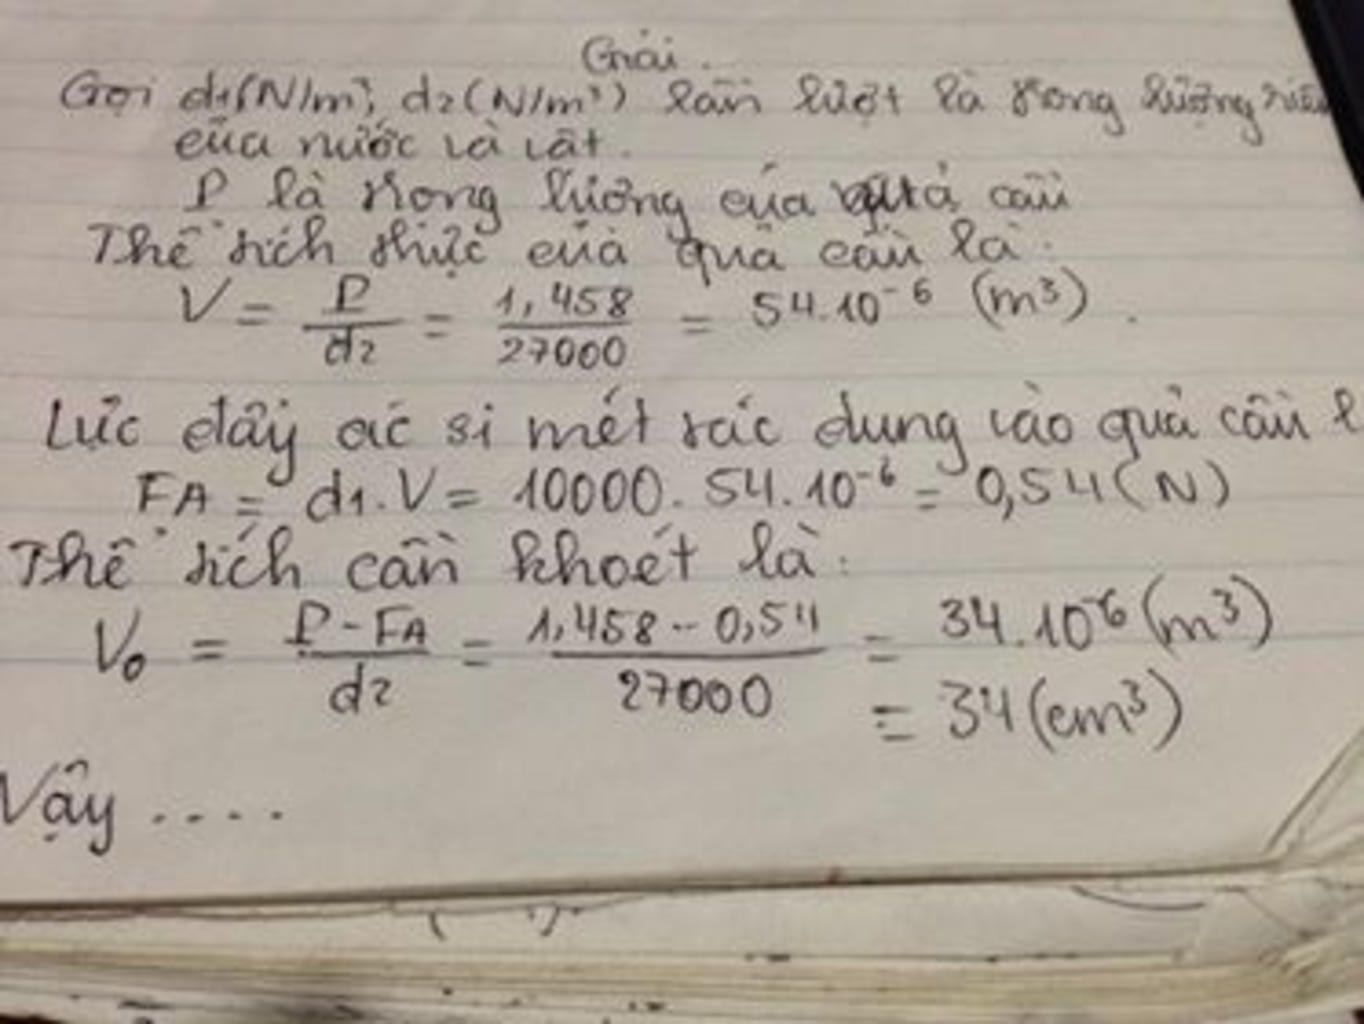 Giải.
Gọi d1(N/m³, d2(N/m³) lần lượt là trọng lượng riêng
của nước và vật.
P là trọng lượng của quả cầu
Thể tích thực của quả cầu là:
V = P/d2 = 1,458/27000 = 54.10⁻⁶ (m³).
Lực đẩy ác si mét tác dụng vào quả cầu l
FA = d1.V = 10000.54.10⁻⁶ = 0,54(N)
Thể tích cần khoét là:
V₀ = P-FA/d2 = 1,458-0,54/27000 = 34.10⁻⁶(m³)
= 34(cm³)
Vậy ....